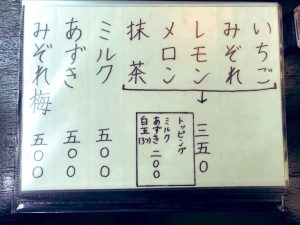 いちご
みぞれ
レモン
メロン
抹茶
三五〇
トッピング
ミルク
あずき 二〇〇
白玉(3コ)
ミルク 五〇〇
あずき 五〇〇
みぞれ梅 五〇〇